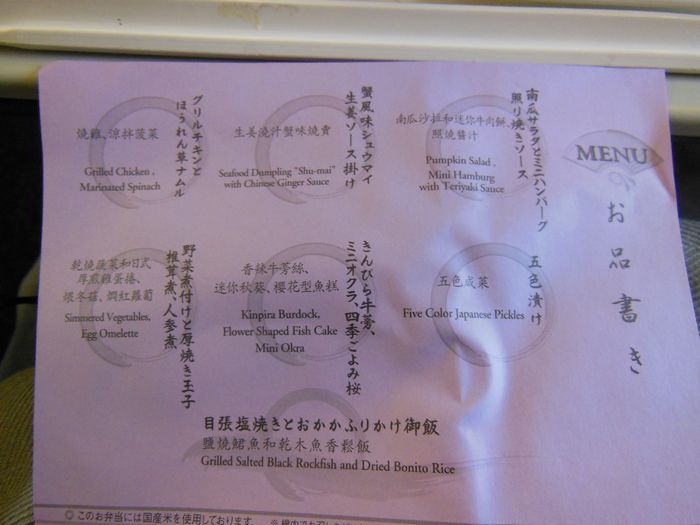 MENU
お品書き
南瓜サラダとミニハンバーグ
照り焼きソース
南瓜沙拉和迷你牛肉餅、
照燒醬汁
Pumpkin Salad ,
Mini Hamburg
with Teriyaki Sauce
蟹風味シュウマイ
生姜ソース掛け
生姜澆汁蟹味燒賣
Seafood Dumpling "Shu-mai"
with Chinese Ginger Sauce
グリルチキンと
ほうれん草ナムル
燒雞、涼拌菠菜
Grilled Chicken ,
Marinated Spinach
五色漬け
五色咸菜
Five Color Japanese Pickles
きんぴら牛蒡、
ミニオクラ、四季ごよみ桜
香辣牛蒡絲、
迷你秋葵、櫻花型魚糕
Kinpira Burdock,
Flower Shaped Fish Cake
Mini Okra
野菜煮付けと厚焼き玉子
椎茸煮、人参煮
乾燒菠菜和日式
厚煎雞蛋捲、
煨冬菇、燜紅蘿蔔
Simmered Vegetables,
Egg Omelette
目張塩焼きとおかかふりかけ御飯
鹽燒鮶魚和乾木魚香鬆飯
Grilled Salted Black Rockfish and Dried Bonito Rice
◎このお弁当には国産米を使用しております。